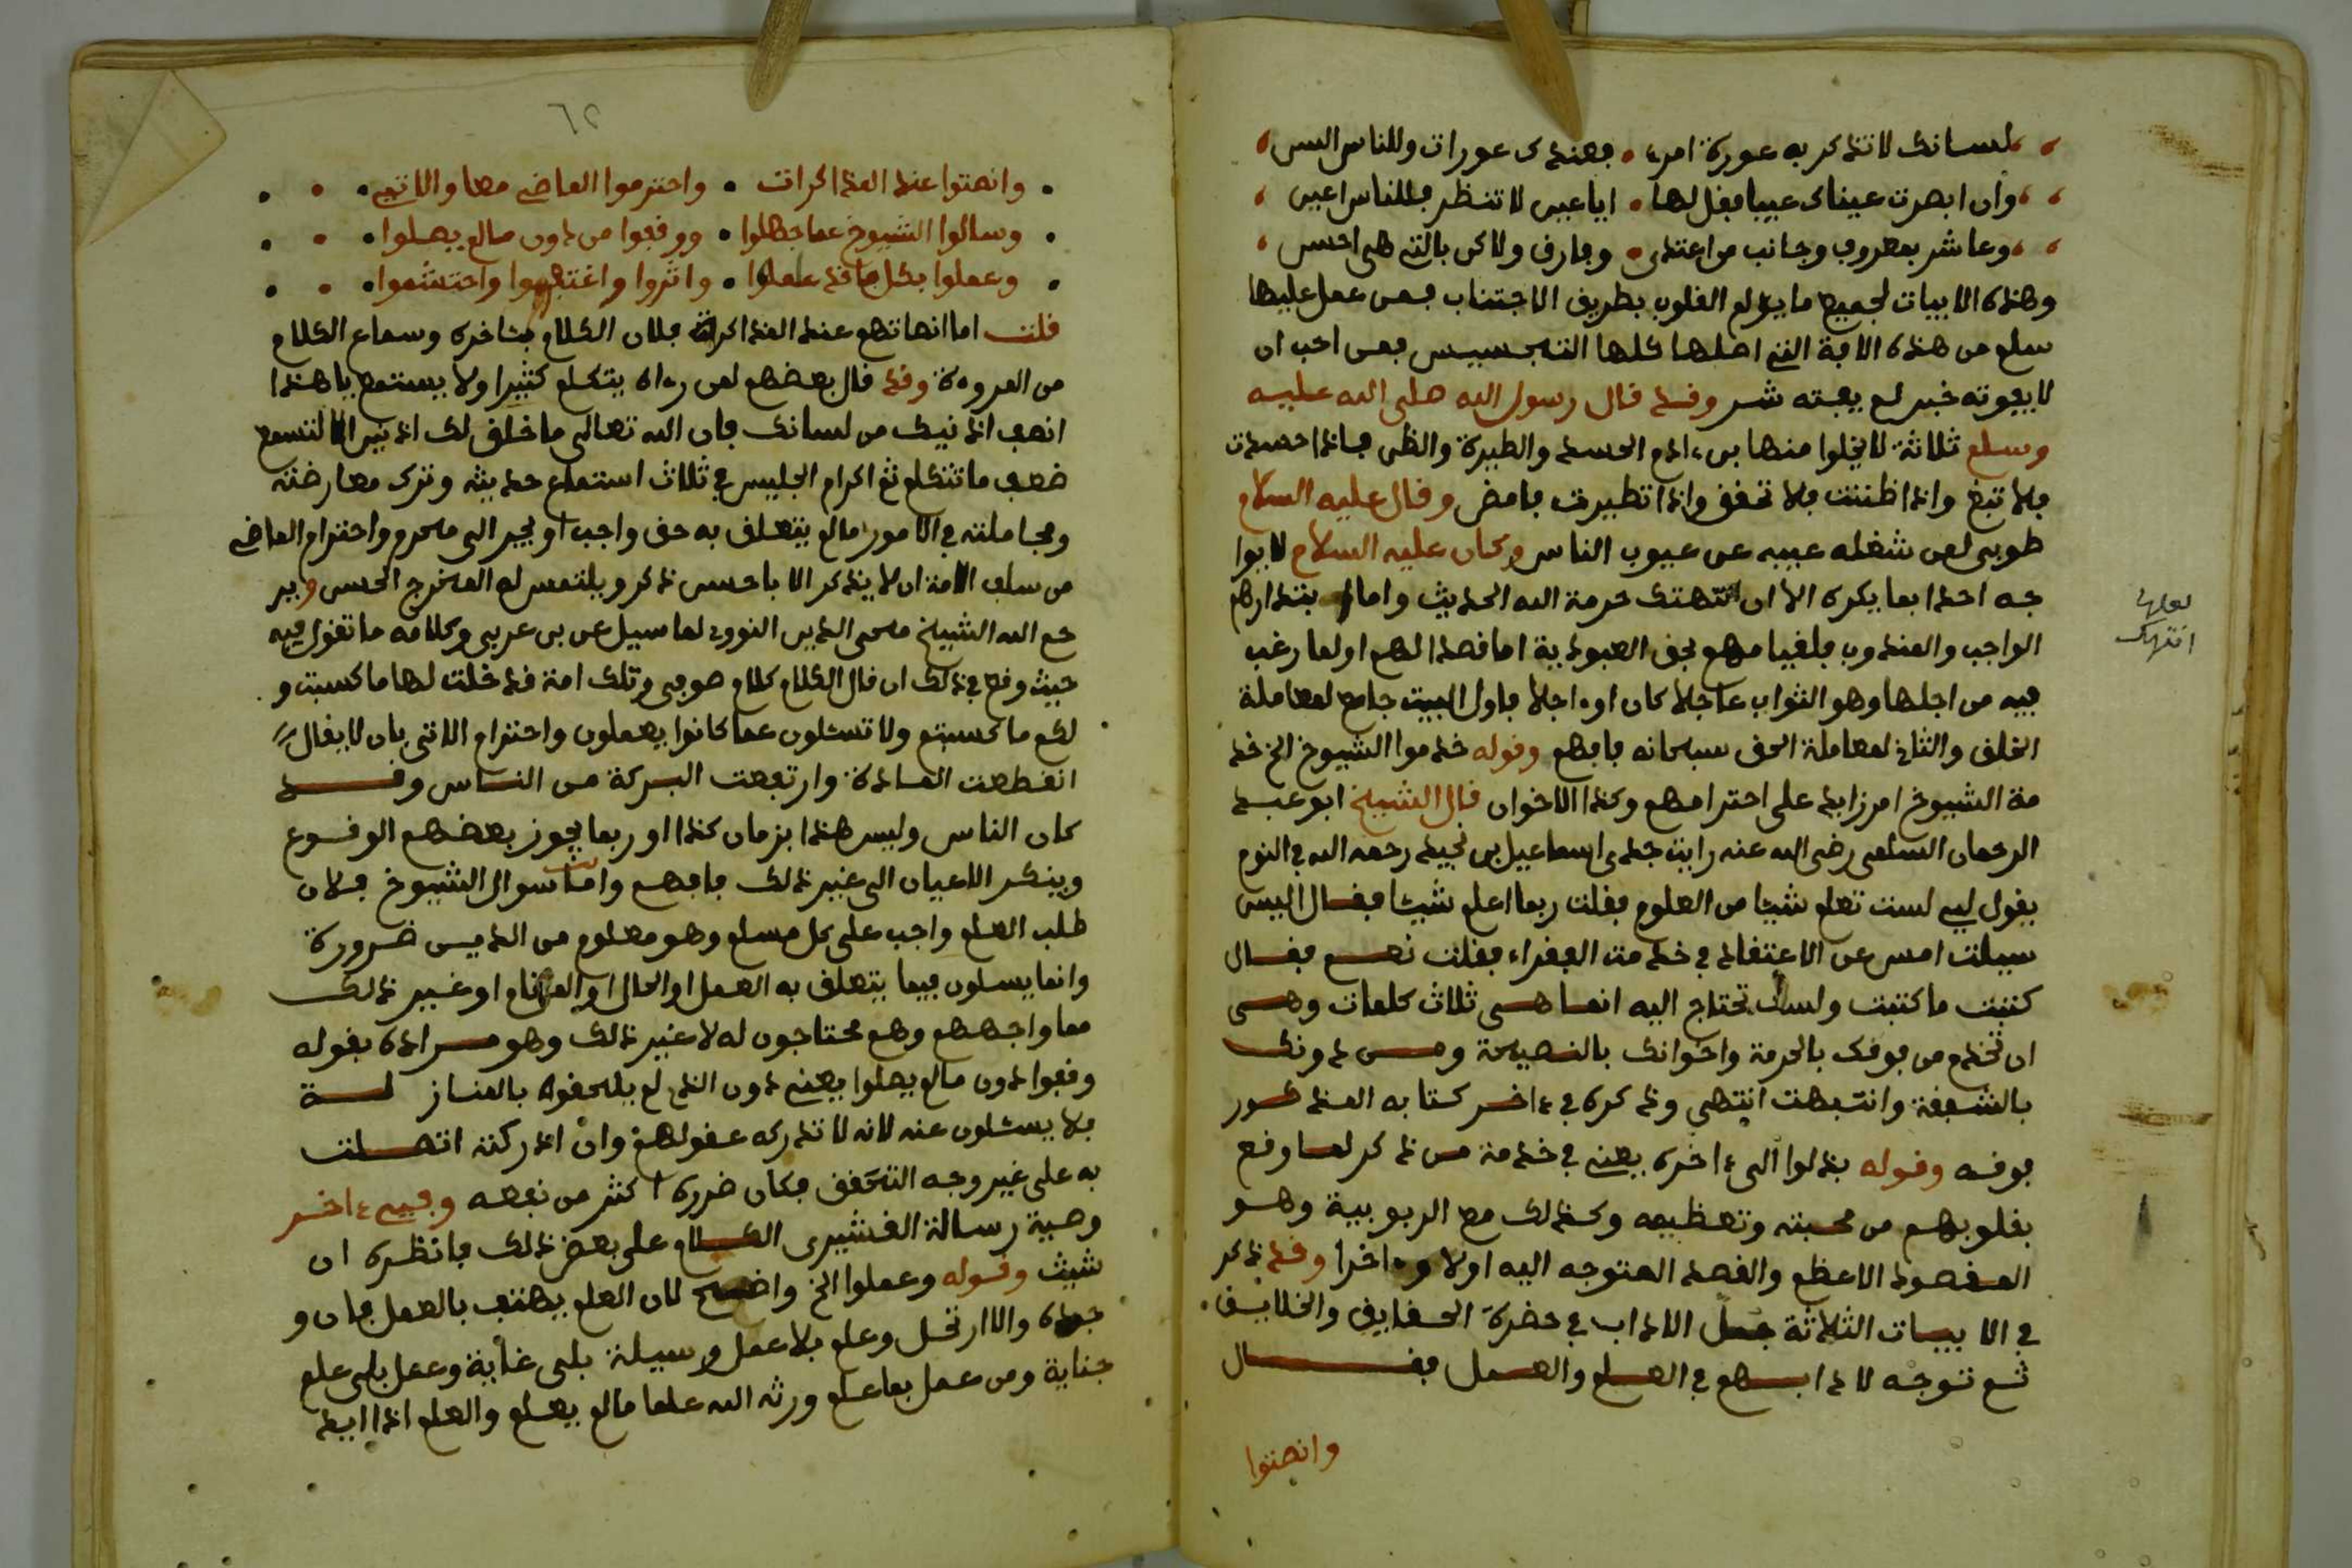 لسانك لا تذكر به عورة امرء • فعندك عورات وللناس السن
وان ابصرت عيناك عيبا فقل لها • ايا عين لا تنظر فللناس اعين
وعاشر بمعروف وجانب من اعتدى • وفارق ولاكن بالتي هي احسن
وهذه الابيات لجميع ما يؤلم القلوب بطريق الاجتناب فمن عمل عليها
سلم من هذه الافة التي اصلها كلها التجسيس فمن احب ان
لا يفوته خير لم يفته شر وقد قال رسول الله صلى الله عليه
وسلم ثلاثة لا يخلوا منها بن ءادم الحسد والطيرة والظن فاذا حسدت
فلا تبغ واذا ظننت فلا تحقق واذا تطيرت فامض وقال عليه السلام
طوبى لمن شغله عيبه عن عيوب الناس وكان عليه السلام لا يوا
جه احدا بما يكره الا ان تنتهتك حرمة الله الحديث واما بتدارهم
الواجب والمندوب فلقيامهم بحق العبودية اما قصدا لهم او لما رغب
فيه من اجلها وهو الثواب عاجلا كان او ءاجلا فاول البيت جامع لمعاملة
الخلق والثاني لمعاملة الحق سبحانه فافهم وقوله خدموا الشيوخ الخ خد
مة الشيوخ امر زايد على احترامهم وكذا الاخوان قال الشيخ ابو عبد
الرحمان السلمي رضي الله عنه رايت جدى اسماعيل بن نجيد رحمه الله في النوم
يقول لي لست تعلم شيئا من العلوم فقلت ربما اعلم شيئا فقال اليس
سيلت امس عن الاعتقاد في خدمت الفقراء فقلت نعم فقال
كتبت ما كتبت ولست تحتاج اليه انما هي ثلاث كلمات وهي
ان تخدم من فوقك بالحرمة واخوانك بالنصيحة ومن دونك
بالشفقة وانتبهت انتهى وذكره في ءاخر كتابه المذكور
فوقه وقوله بذلوا الى ءاخره يعني في خدمة من ذكر لما وقع
بقلوبهم من محبته وتعظيمه وكذلك مع الربوبية وهو
المقصود الاعظم والقصد المتوجه اليه اولا وءاخرا وقد ذكر
في الابيات الثلاثة جمل الاداب في حضرة الحقايق والخلايق
ثم توجه لادابهم في العلم والعمل فقال
وانصتوا
لعله
انتهك
٦٢
وانصتوا عند المذاكرات • واحترموا الماضي معا والاتي
وسالوا الشيوخ عما جهلوا • ووقفوا من دون ما لم يصلوا
وعملوا بكل ما قد علموا • واثروا واغتفروا واحتشموا
قلت اما انصاتهم عند المذاكرة فلان الكلام بئاخره وسماع الكلام
من المروءة وقد قال بعضهم لمن رءاه يتكلم كثيرا ولا يستمع يا هذا
انصف اذنيك من لسانك فان الله تعالى ما خلق لك اذنين الا لتسمع
ضعف ما تتكلم ثم اكرام الجليس في ثلاث استماع حديثه وترك معارضته
ومجاملته في الامور ما لم يتعلق به حق واجب او يجر الى محرم واحترام الماضي
من سلف الامة ان لا يذكر الا باحسن ذكر ويلتمس له المخرج الحسن وير
حم الله الشيخ محي الدين النووى لما سيل عن بن عربي وكلامه ما تقول فيه
حيث وقع في ذلك ان قال الكلام كلام صوفي وتلك امة قد خلت لها ما كسبت و
لكم ما كسبتم ولا تسئلون عما كانوا يعملون واحترام الاتي بان لا يقال
انقطعت المادة وارتفعت البركة من الناس وقد
كان الناس وليس هذا بزمان كذا او ربما يجوز بعضهم الوقوع
وينكر الاعيان الى غير ذلك فافهم واما سوال الشيوخ فلان
طلب العلم واجب على كل مسلم وهو معلوم من الدين ضرورة
وانما يسلون فيما يتعلق به العمل او الحال او المقام او غير ذلك
مما واجههم وهم محتاجون له لا غير ذلك وهو مراده بقوله
وقفوا دون ما لم يصلوا يعني دون الذى لم يلحقوه بالمنازلة
فلا يسئلون عنه لانه لا تدركه عقولهم وان ادركته اتصلت
به على غير وجه التحقق فكان ضرره اكثر من نفعه وفي ءاخر
وصية رسالة القشيرى الكلام على بعض ذلك فانظره ان
شيت وقوله وعملوا الخ واضح لان العلم يهتف بالعمل فان و
جده والا ارتحل وعلم بلا عمل وسيلة بلى غاية وعمل بلى علم
جناية ومن عمل بما علم ورثه الله علما ما لم يعلم والعلم اذا ايد